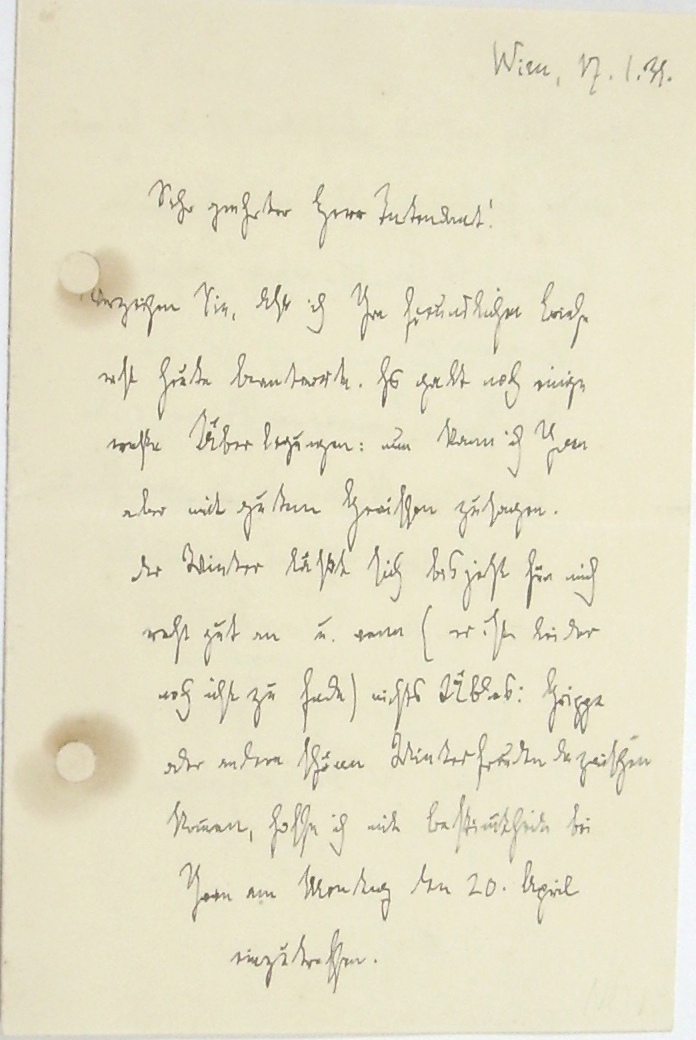 Wien, 17.1.31.
Sehr geehrter Herr Intendant!
Verzeihen Sie, daß ich Ihre freundlichen Briefe
erst heute beantworte. Es galt noch einige
ernste Überlegungen: nun kann ich Ihnen
aber mit gutem Gewissen zusagen.
Der Winter läßt sich bis jetzt für mich
recht gut an u. wenn (er ist leider
noch nicht zu Ende) nichts Übles: Grippe
oder andere schöne Winterfreuden dazwischen
kommen, hoffe ich mit Bestimmtheit bei
Ihnen am Montag den 20. April
einzutreffen.